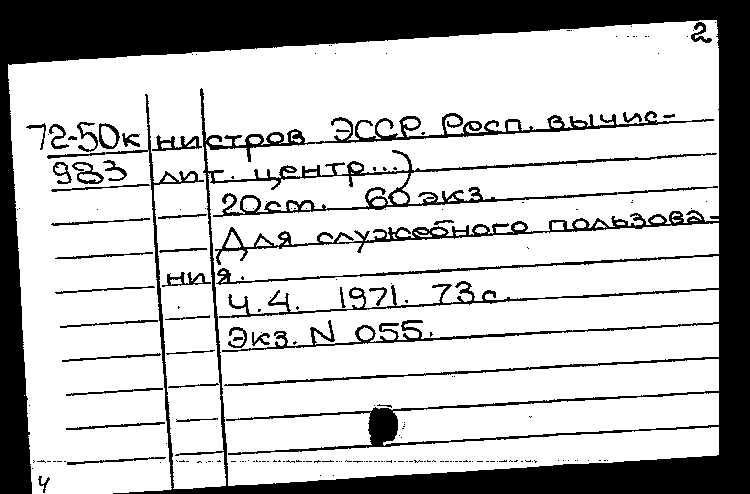 2
72-50к нистров ЭССР. Респ. вычис-
983 лит. центр...)
20см. 60 экз.
Для служебного пользова-
ния.
Ч.4. 1971. 73 с.
Экз. N 055.
4